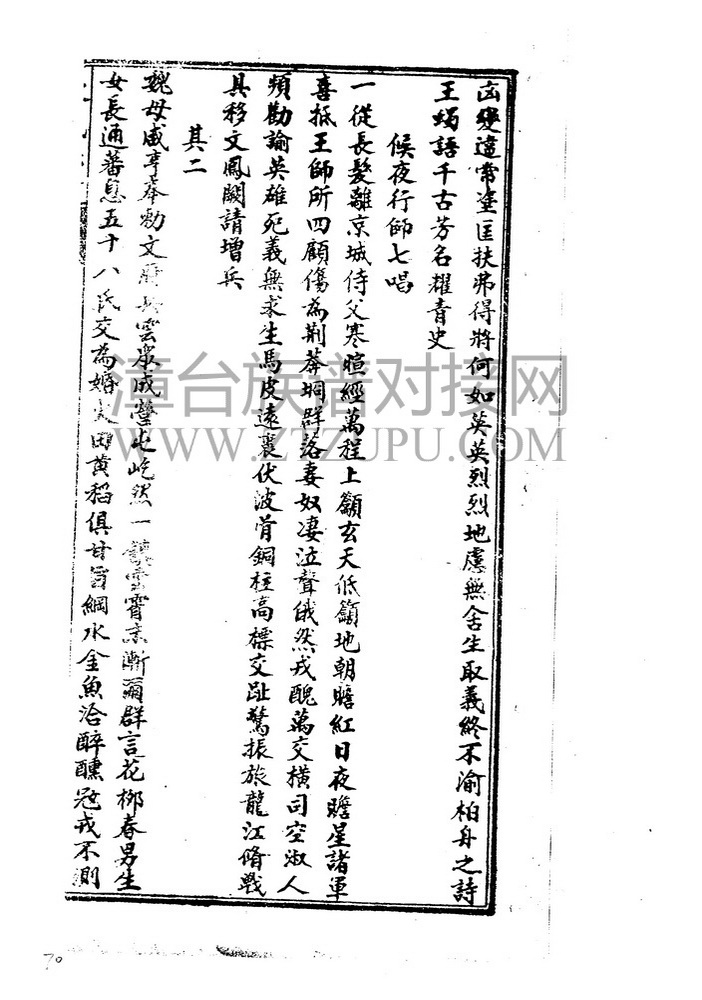 凶變違常塗匡扶弗得將何如英英烈烈地慮無舍生取義終不渝柏舟之詩
王蠋語千古芳名耀青史
候夜行師七唱
一從長髮離京城侍父寒暄經萬程上籲玄天低籲地朝瞻紅日夜瞻星諸軍
喜抵王師所四顧傷為荆莽坰群落妻奴凄泣聲俄然戎醜萬交橫司空淑人
頻勸諭英雄死義無求生馬皮遠裹伏波骨銅柱高標交趾驚振旅龍江脩戰
具移文鳳闕請增兵
其二
魏母咸亨奉勅文將兵雲眾成營屯屹然一鎮雲霄末漸爾群言花柳春男生
女長通蕃息五十八氏交為婚 田黄稻俱甘旨綱水金魚洽醉醺冦戎不測
漳台族谱对接网
WWW.ZTZUPU.COM
70